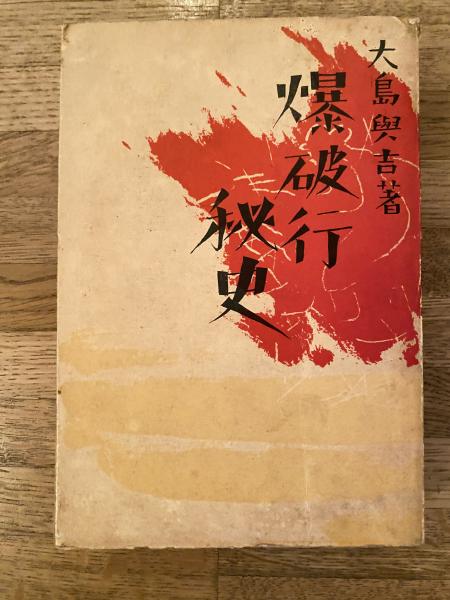 大島與吉著
爆破行
秘史